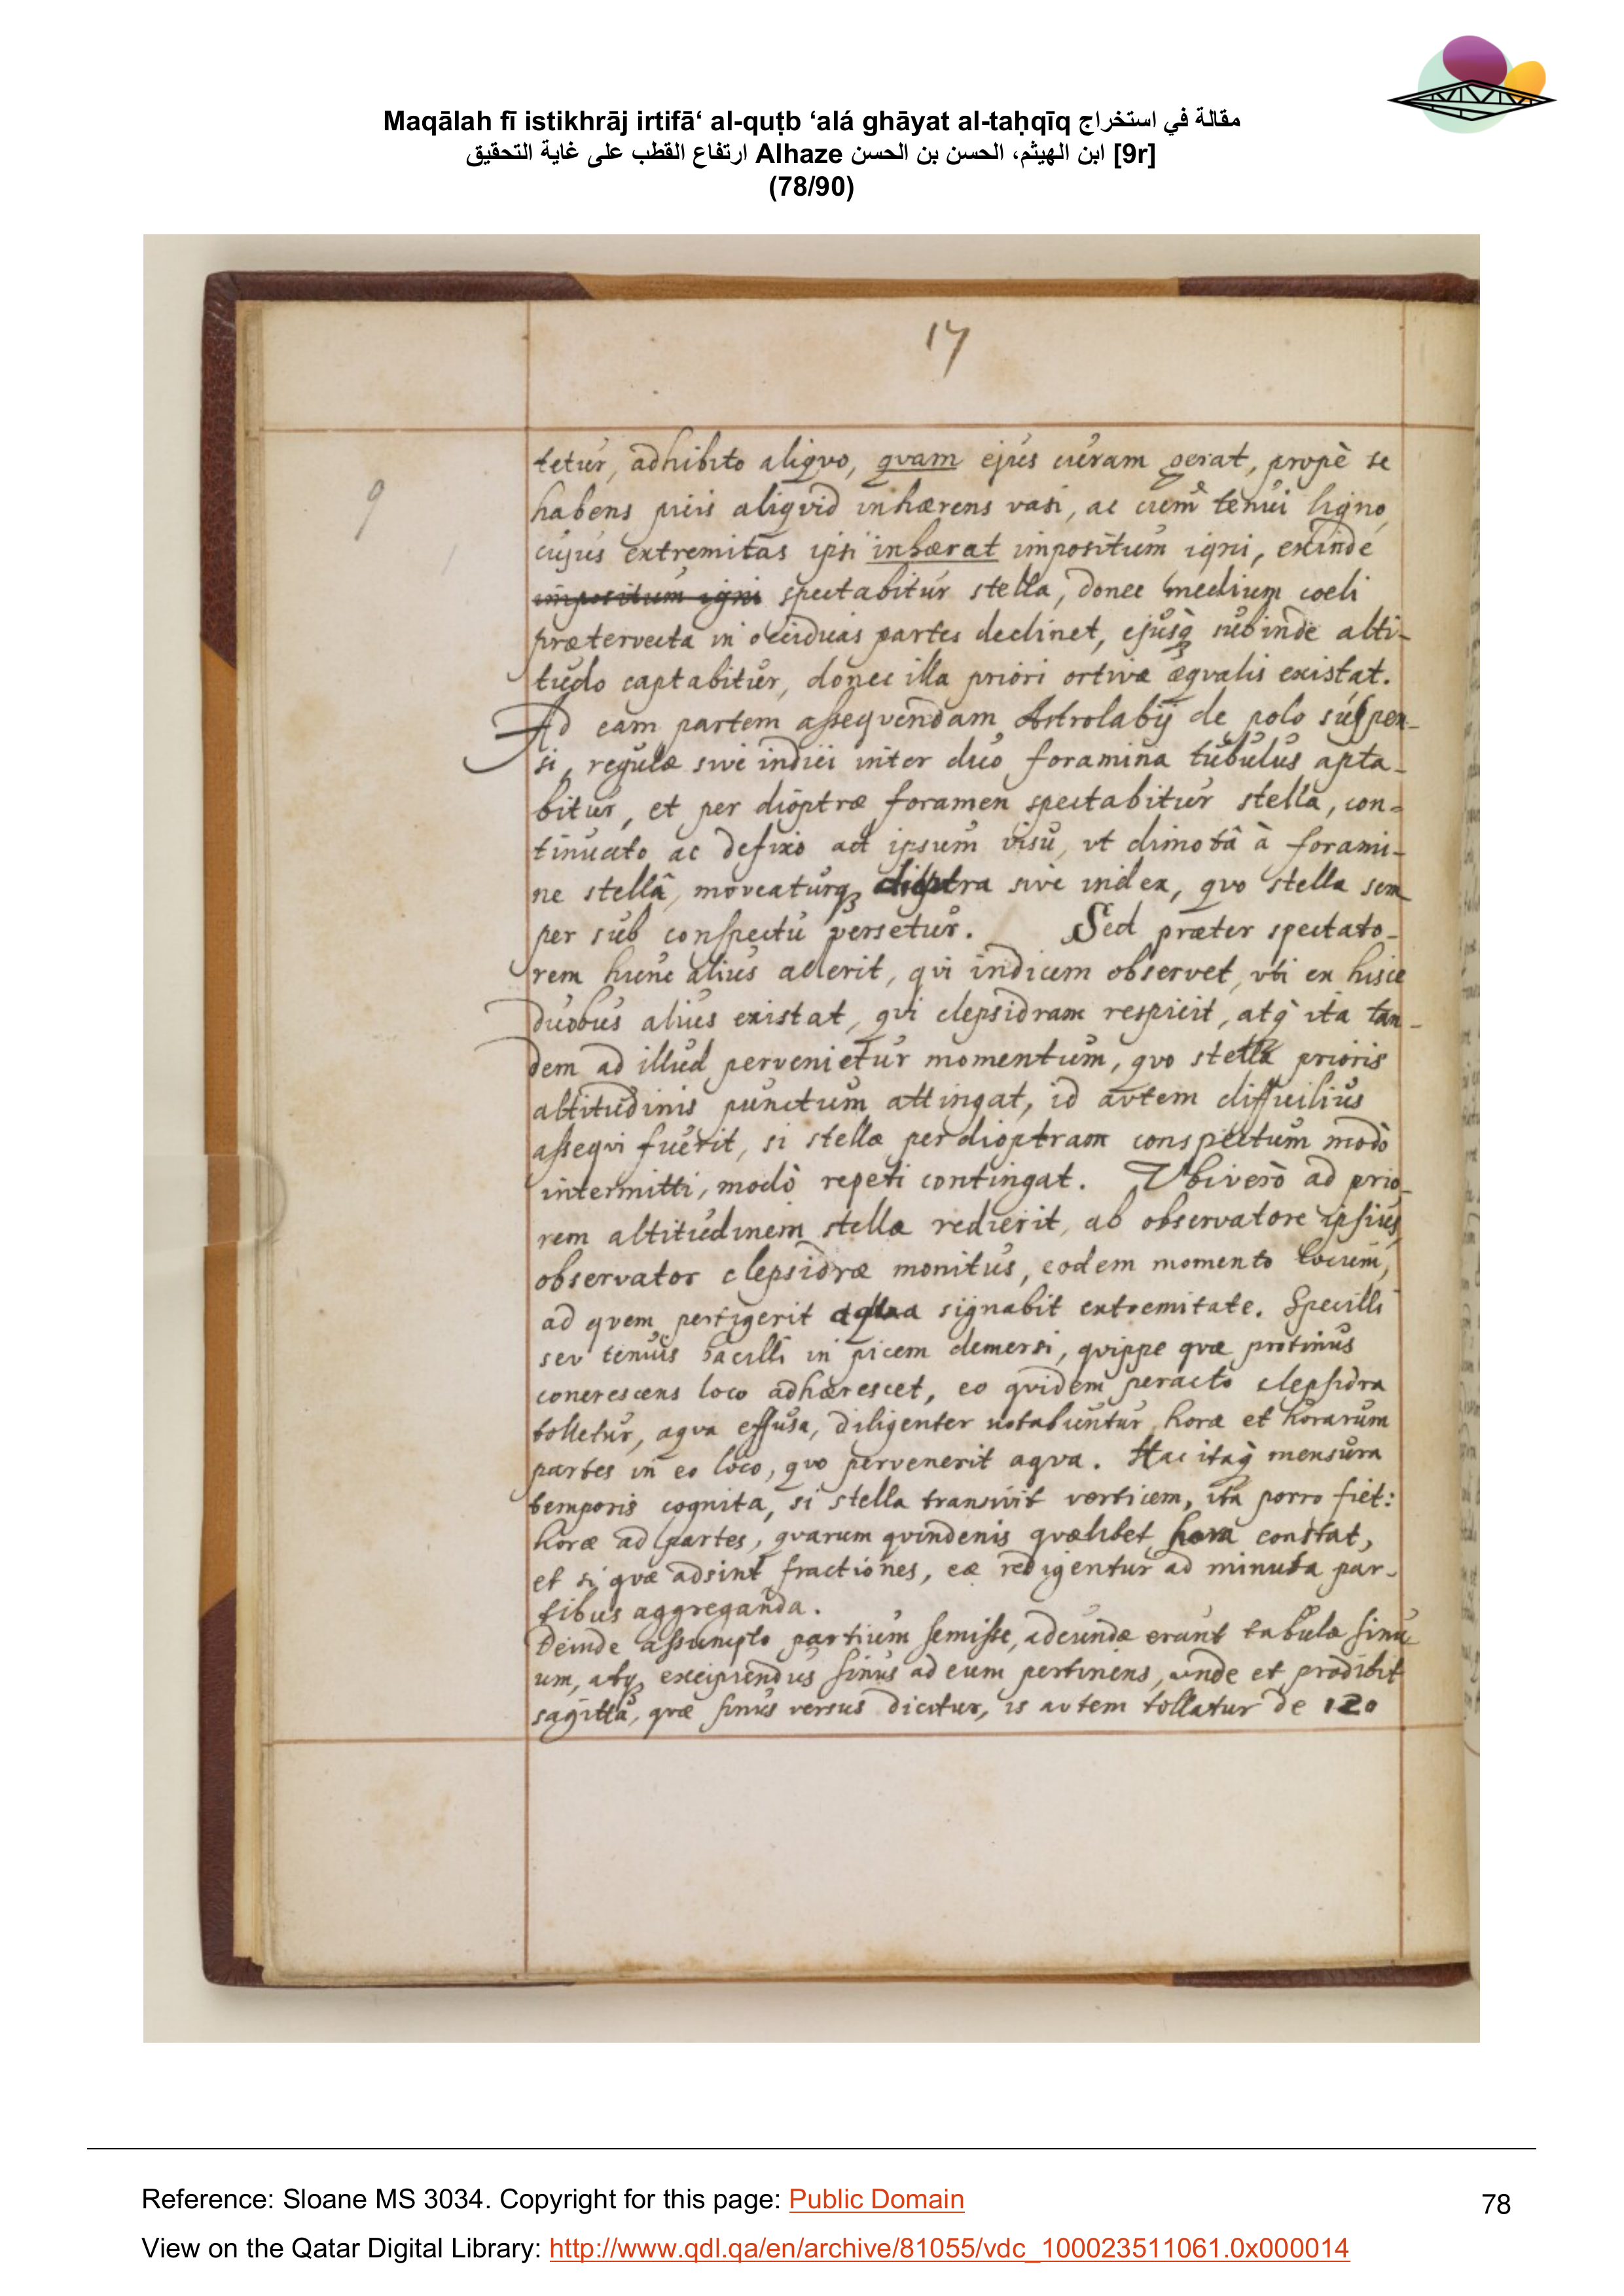 Maqālah fī istikhrāj irtifā‘ al-quṭb ‘alá ghāyat al-taḥqīq مقالة في استخراج
ارتفاع القطب على غاية التحقيق Alhaze ابن الهيثم، الحسن بن الحسن [9r]
(78/90)
17
tetur, adhibito aliqvo, qvam ejus curam gerat, propè se
9
habens picis aliqvid inhærens vasi, ac cum tenui ligno
cujus extremitas ipsi inhærat impositum igni, exinde
impositum igni spectabitur stella, donec medium coeli
prætervecta in occiduas partes declinet, ejusq̧ subinde alti-
tudo captabitur, donec illa priori ortivæ æqvalis existat.
Ad eam partem assequendam Astrolabij de polo suspen-
si, regulæ sive indici inter duo foramina tubulus apta-
bitur, et per dioptræ foramen spectabitur stella, con-
tinuato ac defixo ad ipsum visu, vt dimotâ à forami-
ne stellâ, moveaturq̧ dioptra sive index, qvo stella sem
per sub conspectu versetur. Sed præter spectato-
rem hunc alius aderit, qvi indicem observet, vti ex hisce
duobus alius existat, qvi clepsidram respicit, atq̀ ita tan-
dem ad illud pervenietur momentum, qvo stella prioris
altitudinis punctum attingat, id avtem difficilius
asseqvi fuerit, si stellæ per dioptram conspectum modò
intermitti, modò repeti contingat. Vbi verò ad prio-
rem altitudinem stella redierit, ab observatore ipsius
observator clepsidræ monitus, eodem momento locum,
ad qvem pertigerit aqva signabit extremitate. Specilli
sev tenuis bacilli in picem demersi, qvippe qvæ protinus
concrescens loco adhærescet, eo qvidem peracto clepsidra
tolletur, aqva effusa, diligenter notabuntur horæ et horarum
partes in eo loco, qvo pervenerit aqva. Hac itaq̀ mensura
temporis cognita, si stella transivit verticem, ita porro fiet:
horæ ad partes, qvarum qvindenis qvælibet hora constat,
et si qvæ adsint fractiones, eæ redigentur ad minuta par-
tibus aggreganda.
Deinde assumpto partium semisse, adeundæ erunt tabulæ sinu
um, atq̧ excipiendus sinus ad eum pertinens, unde et prodibit
sagitta, qvæ sinus versus dicitur, is avtem tollatur de 120
Reference: Sloane MS 3034. Copyright for this page: Public Domain
78
View on the Qatar Digital Library: http://www.qdl.qa/en/archive/81055/vdc_100023511061.0x000014